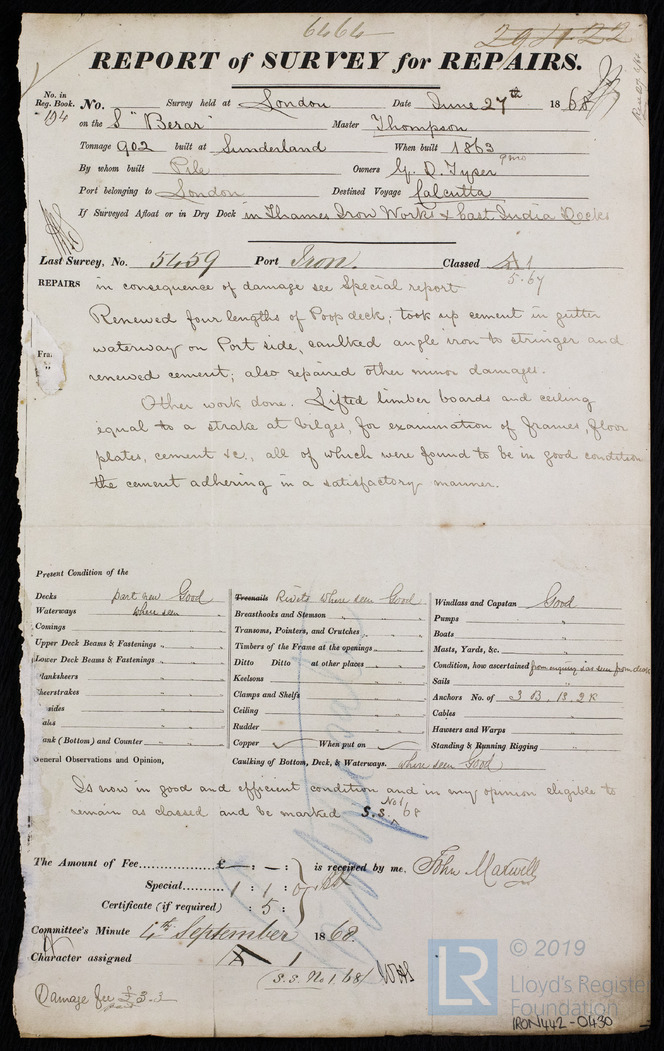 6464 29 11 22
REPORT of SURVEY for REPAIRS.
No. in Reg. Book. No. Survey held at London Date June 27th 1868
194 on the S "Berar" Master Thompson
Tonnage 902 built at Sunderland When built 1863
By whom built Pile Owners G. D. Tyser
Port belonging to London Destined Voyage Calcutta
If Surveyed Afloat or in Dry Dock in Thames Iron Works & East India Docks
Last Survey, No. 5459 Port Iron. Classed A1
5.67
REPAIRS in consequence of damage see Special report
Renewed four lengths of Poop deck; took up cement in gutter
Fra.
waterway on Port side, caulked angle iron to stringer and
renewed cement; also repaired other minor damages.
Other work done. Lifted limber boards and ceiling
equal to a strake at bilges, for examination of frames, floor
plates, cement &c., all of which were found to be in good condition
the cement adhering in a satisfactory manner.
Present Condition of the
Decks part new Good
Waterways where seen
Comings "
Upper Deck Beams & Fastenings " "
Lower Deck Beams & Fastenings " "
lanksheers "
heerstrakes "
sides "
ank (Bottom) and Counter " "
General Observations and Opinion,
Treenails Rivets where seen Good
Breasthooks and Stemson " "
Transoms, Pointers, and Crutches " "
Timbers of the Frame at the openings " "
Ditto Ditto at other places " "
Keelsons " "
Clamps and Shelfs " "
Ceiling " "
Rudder " "
Copper ✓ When put on ✓
Caulking of Bottom, Deck, & Waterways. where seen Good
Windlass and Capstan Good
Pumps "
Boats "
Masts, Yards, &c. "
Condition, how ascertained from enquiry & as seen from deck
Sails "
Anchors No. of 3 B. 1 S. 2 K
Cables "
Hawsers and Warps "
Standing & Running Rigging "
Is now in good and efficient condition and in my opinion eligible to
remain as classed and be marked S.S. No 1/68
The Amount of Fee £ — : — : is received by me, John Maxwell
Special 1 : 1 : 0
Certificate (if required) : 5 :
Committee's Minute 4th September 1868.
Character assigned A 1
S.S. No 1. 68
Damage fee £3.3
© 2019
LR
Lloyd's Register
Foundation
IRON442-0430